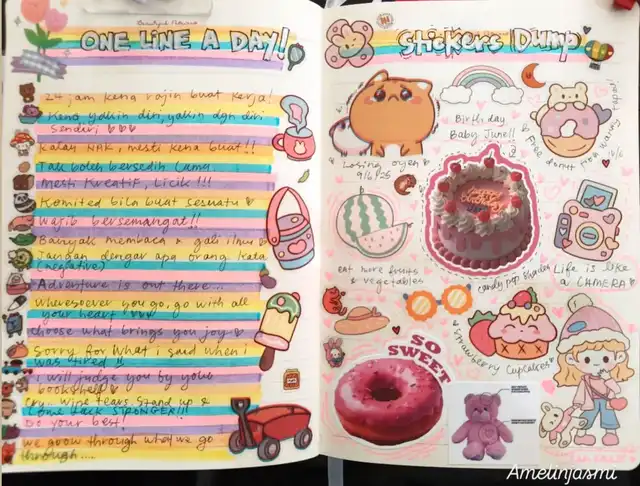 Beautiful Flowers
ONE LINE A DAY!
24 jam kena rajin buat kerja!
Kena yakin diri, yakin dgn diri
sendiri
kalau NAK, mesti kena buat!!
Tak boleh bersedih lama
Mesti kreatif, licik!!!
Komited bila buat sesuatu
wajib bersemangat!!
Banyak membaca & gali ilmu
Jangan dengar apa orang kata
(negative)
Adventure is out there...
Wheresoever you go, go with all
your heart
choose what brings you joy
Sorry for what i said when i
was tired!!
i will judge you by your
bookshelf
Cry.. wipe tears, stand up &
come back STRONGER!!!
Do your best!
we grow through what we go
through....
Stickers Dump
Losing oyen
9/6/25
Birthday
Baby June!!
Free donut from
eat more fruits
& vegetables
candy pop
Life is like
a CAMERA
Strawberry
Cupcakes
SO
SWEET
Amelinjasmi